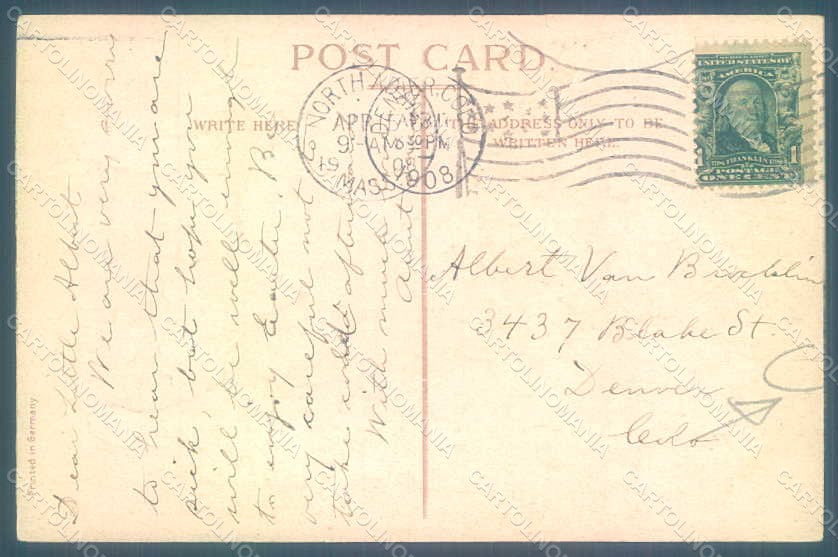 POST CARD.
WRITE HERE
THE ADDRESS ONLY TO BE
WRITTEN HERE.
NORTH
APR
9-AM
19
MASS.
DENVER, COLO
6 30 PM
1908
UNITED STATES OF
AMERICA
FRANKLIN
POSTAGE
1 ONE CENT 1
Dear Little Albert
We are very sorry
to hear that you are
sick, but hope you
will be well enough
to enjoy Easter. Be
very careful not
take cold after
With much
Aunt
Albert Van Bricklin
3437 Blake St.
Denver
Colo
Printed in Germany
CARTOLINOMANIA